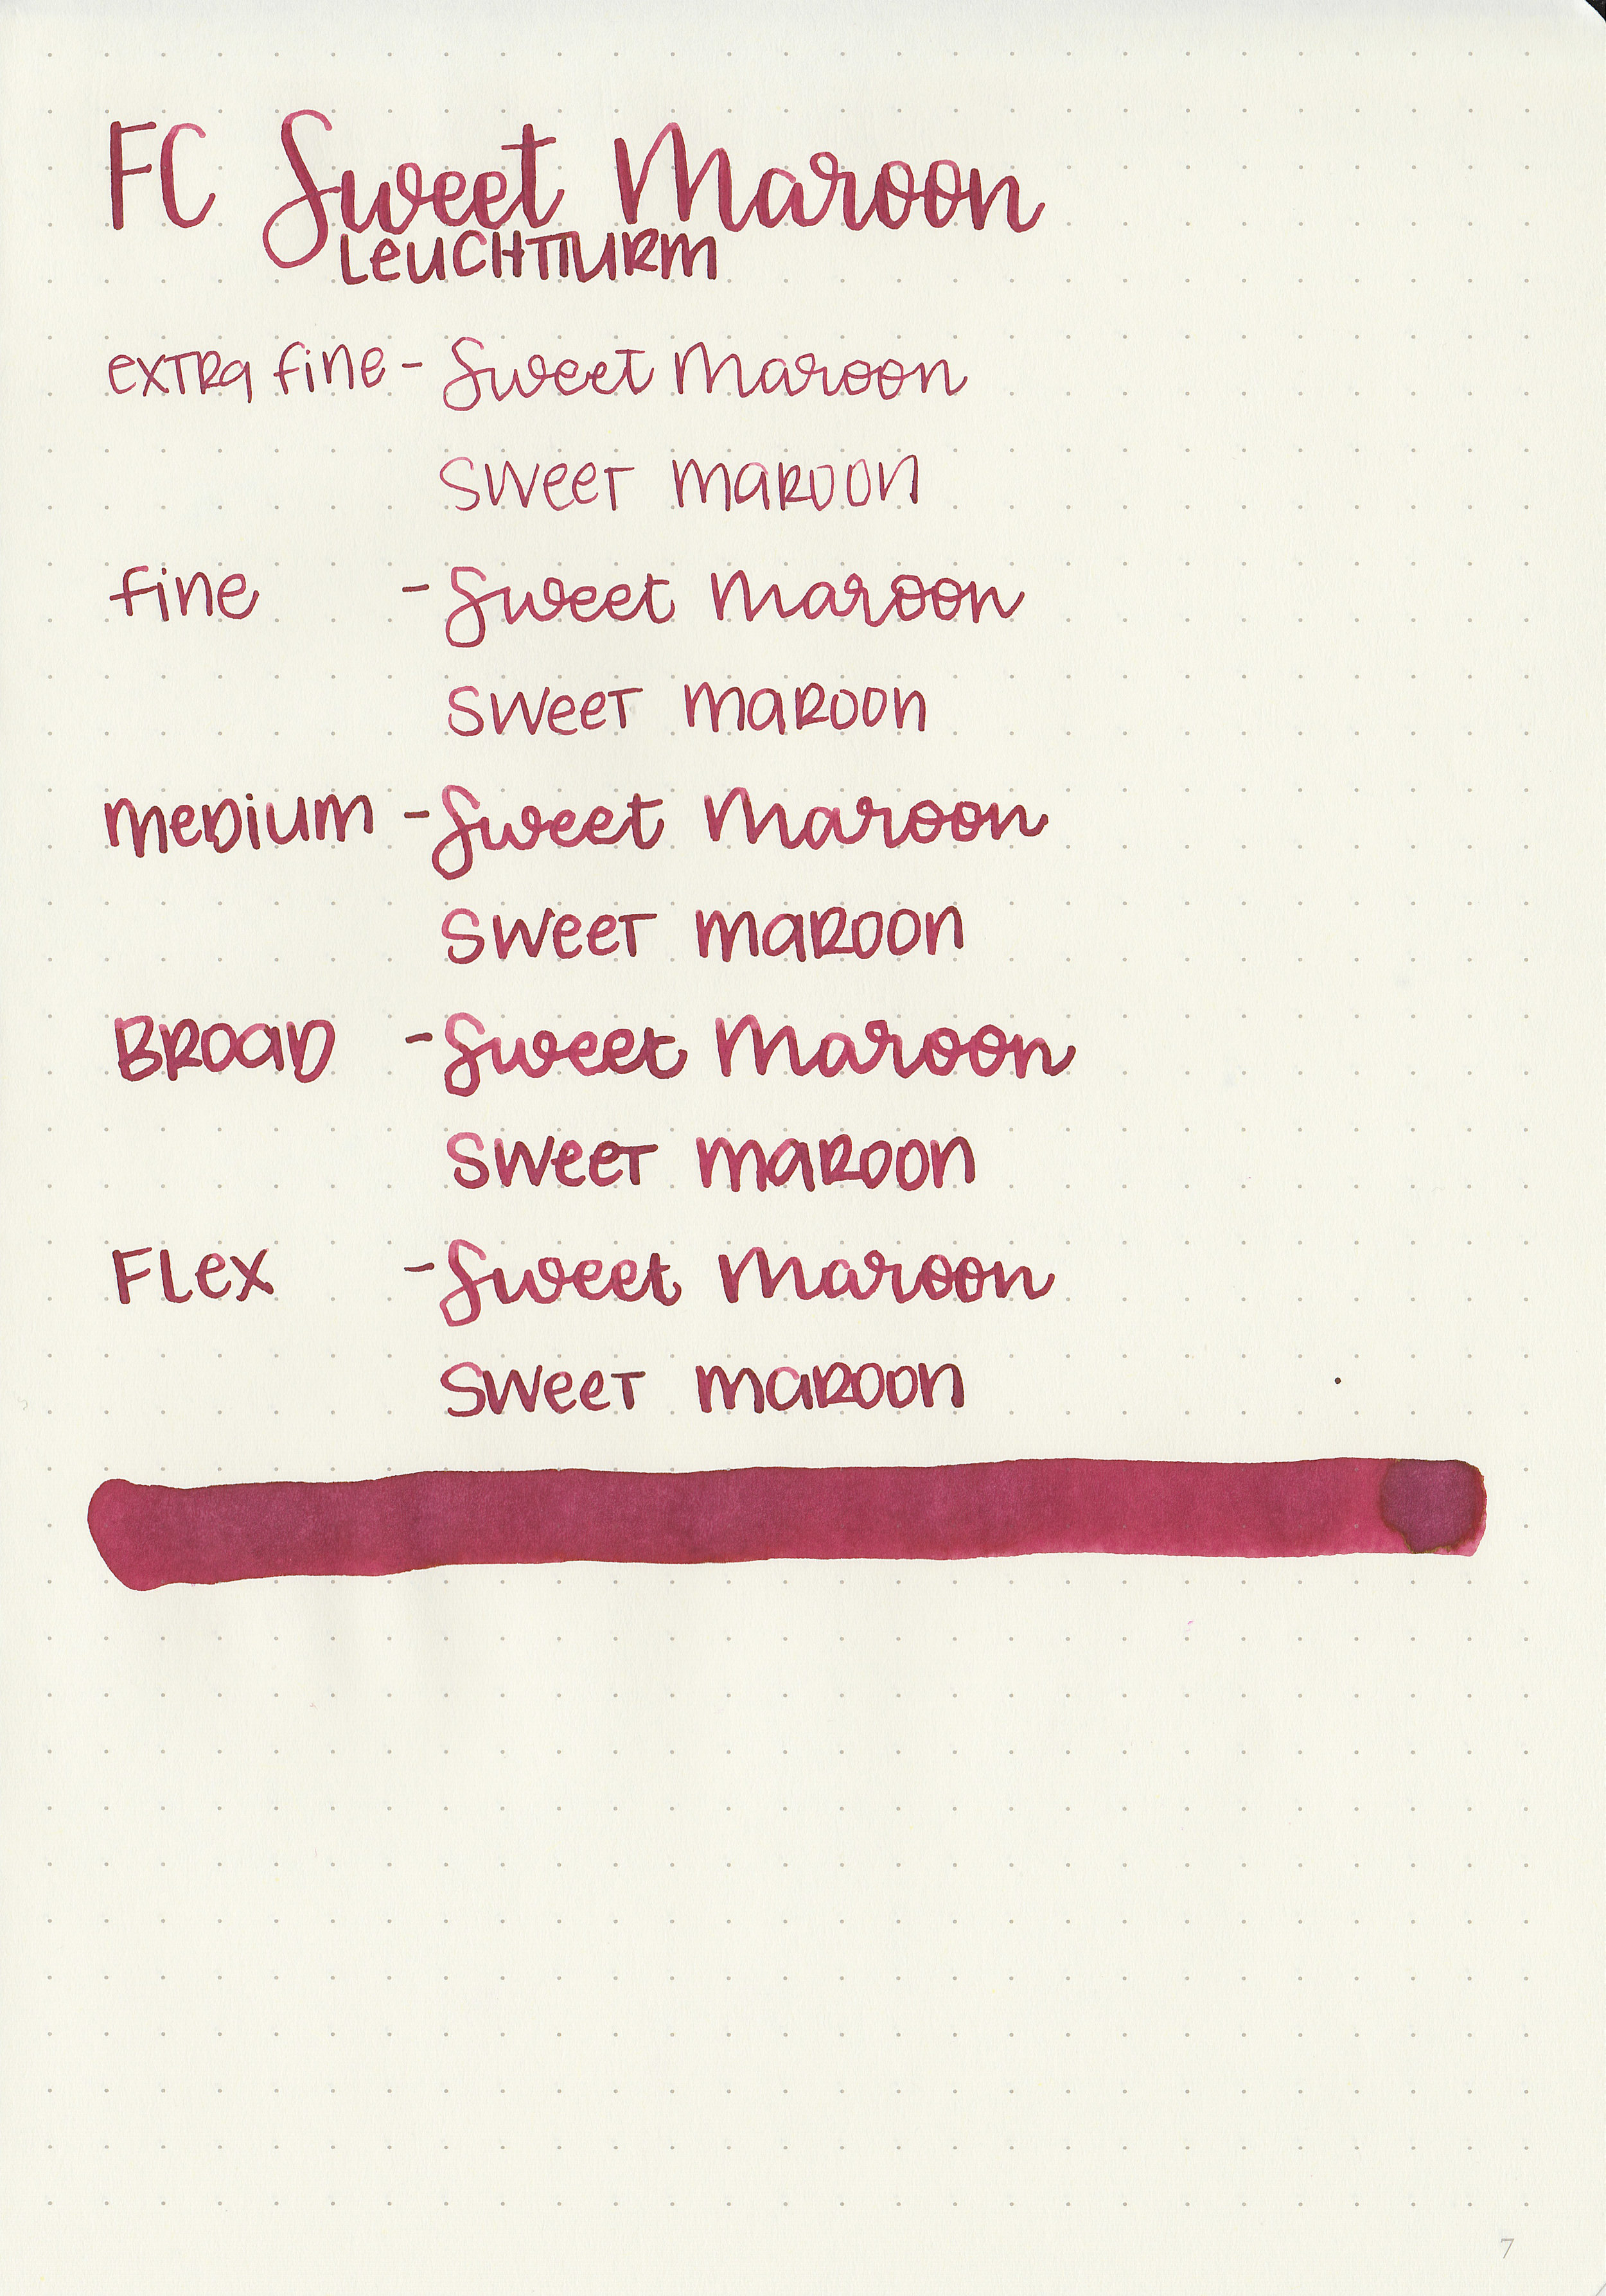 FC Sweet Maroon
LeUCHTTURM
exTRa fine - Sweet Maroon
SWeeT maROON
fine - Sweet Maroon
SWeeT maROON
meDium - Sweet Maroon
SWeeT maROON
BROaD - Sweet Maroon
SWeeT maROON
FLex - Sweet Maroon
SWeeT maROON
7